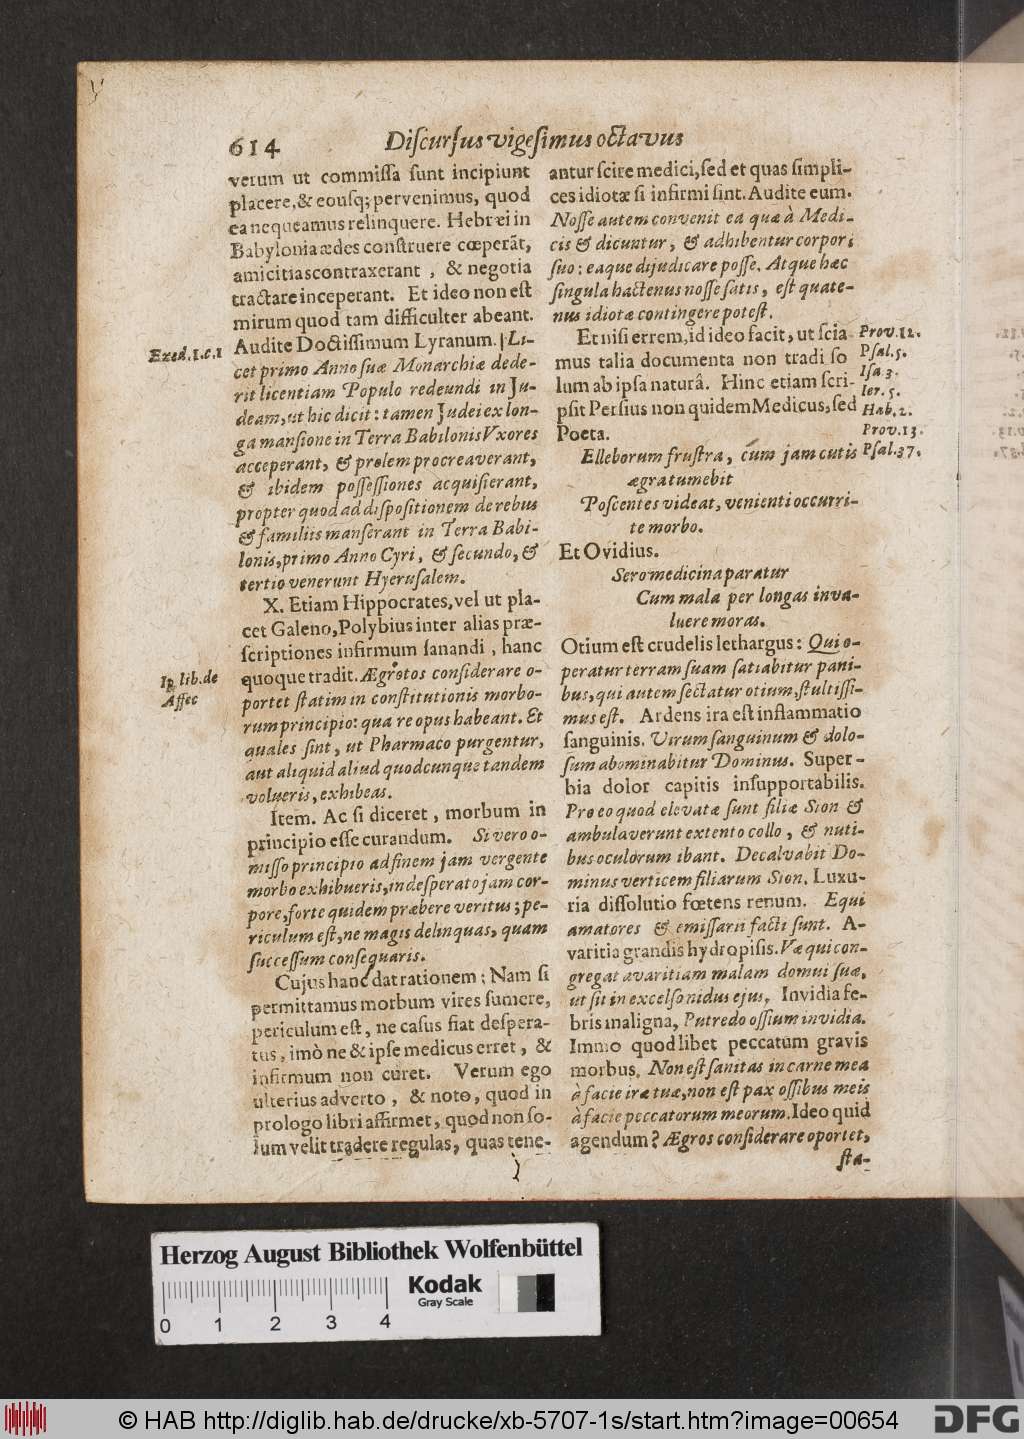 614
Diſcurſus vigeſimus octavus
verum ut commiſſa ſunt incipiunt
placere, & eouſq; pervenimus, quod
ea nequeamus relinquere. Hebræi in
Babylonia ædes conſtruere cœperãt,
amicitias contraxerant, & negotia
tractare inceperant. Et ideo non eſt
mirum quod tam difficulter abeant.
Exed. 1. c. 1
Audite Doctiſſimum Lyranum. | Li-
cet primo Anno ſuæ Monarchiæ dede-
rit licentiam Populo redeundi in Ju-
deam, ut hic dicit: tamen Judei ex lon-
ga manſione in Terra Babilonis Vxores
acceperant, & prolem procreaverant,
& ibidem poſſeſſiones acquiſierant,
propter quod ad diſpoſitionem de rebus
& familiis manſerant in Terra Babi-
lonis, primo Anno Cyri, & ſecundo, &
tertio venerunt Hyeruſalem.
X. Etiam Hippocrates, vel ut pla-
cet Galeno, Polybius inter alias præ-
ſcriptiones infirmum ſanandi, hanc
Ip. lib. de
Affec
quoque tradit. Ægrotos conſiderare o-
portet ſtatim in conſtitutionis morbo-
rum principio: qua re opus habeant. Et
quales ſint, ut Pharmaco purgentur,
aut aliquid aliud quodcunque tandem
volueris, exhibeas.
Item. Ac ſi diceret, morbum in
principio eſſe curandum. Si vero o-
miſſo principio ad finem jam vergente
morbo exhibueris, in deſperato jam cor-
pore, forte quidem præbere veritus; pe-
riculum eſt, ne magis delinquas, quam
ſucceſſum conſequaris.
Cujus hanc dat rationem: Nam ſi
permittamus morbum vires ſumere,
periculum eſt, ne caſus fiat deſpera-
tus, imò ne & ipſe medicus erret, &
infirmum non curet. Verum ego
ulterius adverto, & noto, quod in
prologo libri affirmet, quod non ſo-
lum velit tradere regulas, quas tene-
antur ſcire medici, ſed et quas ſimpli-
ces idiotæ ſi infirmi ſint. Audite eum.
Noſſe autem convenit ea quæ à Medi-
cis & dicuntur, & adhibentur corpori
ſuo: eaque dijudicare poſſe. Atque hæc
ſingula hactenus noſſe ſatis, eſt quate-
nus idiotæ contingere poteſt.
Et niſi errem, id ideo facit, ut ſcia-
mus talia documenta non tradi ſo
lum ab ipſa naturâ. Hinc etiam ſcri-
pſit Perſius non quidem Medicus, ſed
Poeta.
Prov. 12.
Pſal. 5.
Iſa 3.
Ier. 5.
Hab. 2.
Prov. 13.
Pſal. 37.
Elleborum fruſtra, cum jam cutis
ægra tumebit
Poſcentes videat, venienti occurri-
te morbo.
Et Ovidius.
Sero medicina paratur
Cum mala per longas inva-
luere moras.
Otium eſt crudelis lethargus: Qui o-
peratur terram ſuam ſatiabitur pani-
bus, qui autem ſectatur otium, ſtultiſſi-
mus eſt. Ardens ira eſt inflammatio
ſanguinis. Virum ſanguinum & dolo-
ſum abominabitur Dominus. Super-
bia dolor capitis inſupportabilis.
Pro eo quod elevatæ ſunt filiæ Sion &
ambulaverunt extento collo, & nuti-
bus oculorum ibant. Decalvabit Do-
minus verticem filiarum Sion. Luxu-
ria diſſolutio fœtens renum. Equi
amatores & emiſſarii facti ſunt. A-
varitia grandis hydropiſis. Væ qui con-
gregat avaritiam malam domui ſuæ,
ut ſit in excelſo nidus ejus. Invidia fe-
bris maligna, Putredo oſſium invidia.
Immo quodlibet peccatum gravis
morbus. Non eſt ſanitas in carne mea
à facie iræ tuæ, non eſt pax oſſibus meis
à facie peccatorum meorum. Ideo quid
agendum? Ægros conſiderare oportet,
ſta-
Herzog August Bibliothek Wolfenbüttel
0 1 2 3 4
Kodak
Gray Scale
© HAB http://diglib.hab.de/drucke/xb-5707-1s/start.htm?image=00654
DFG